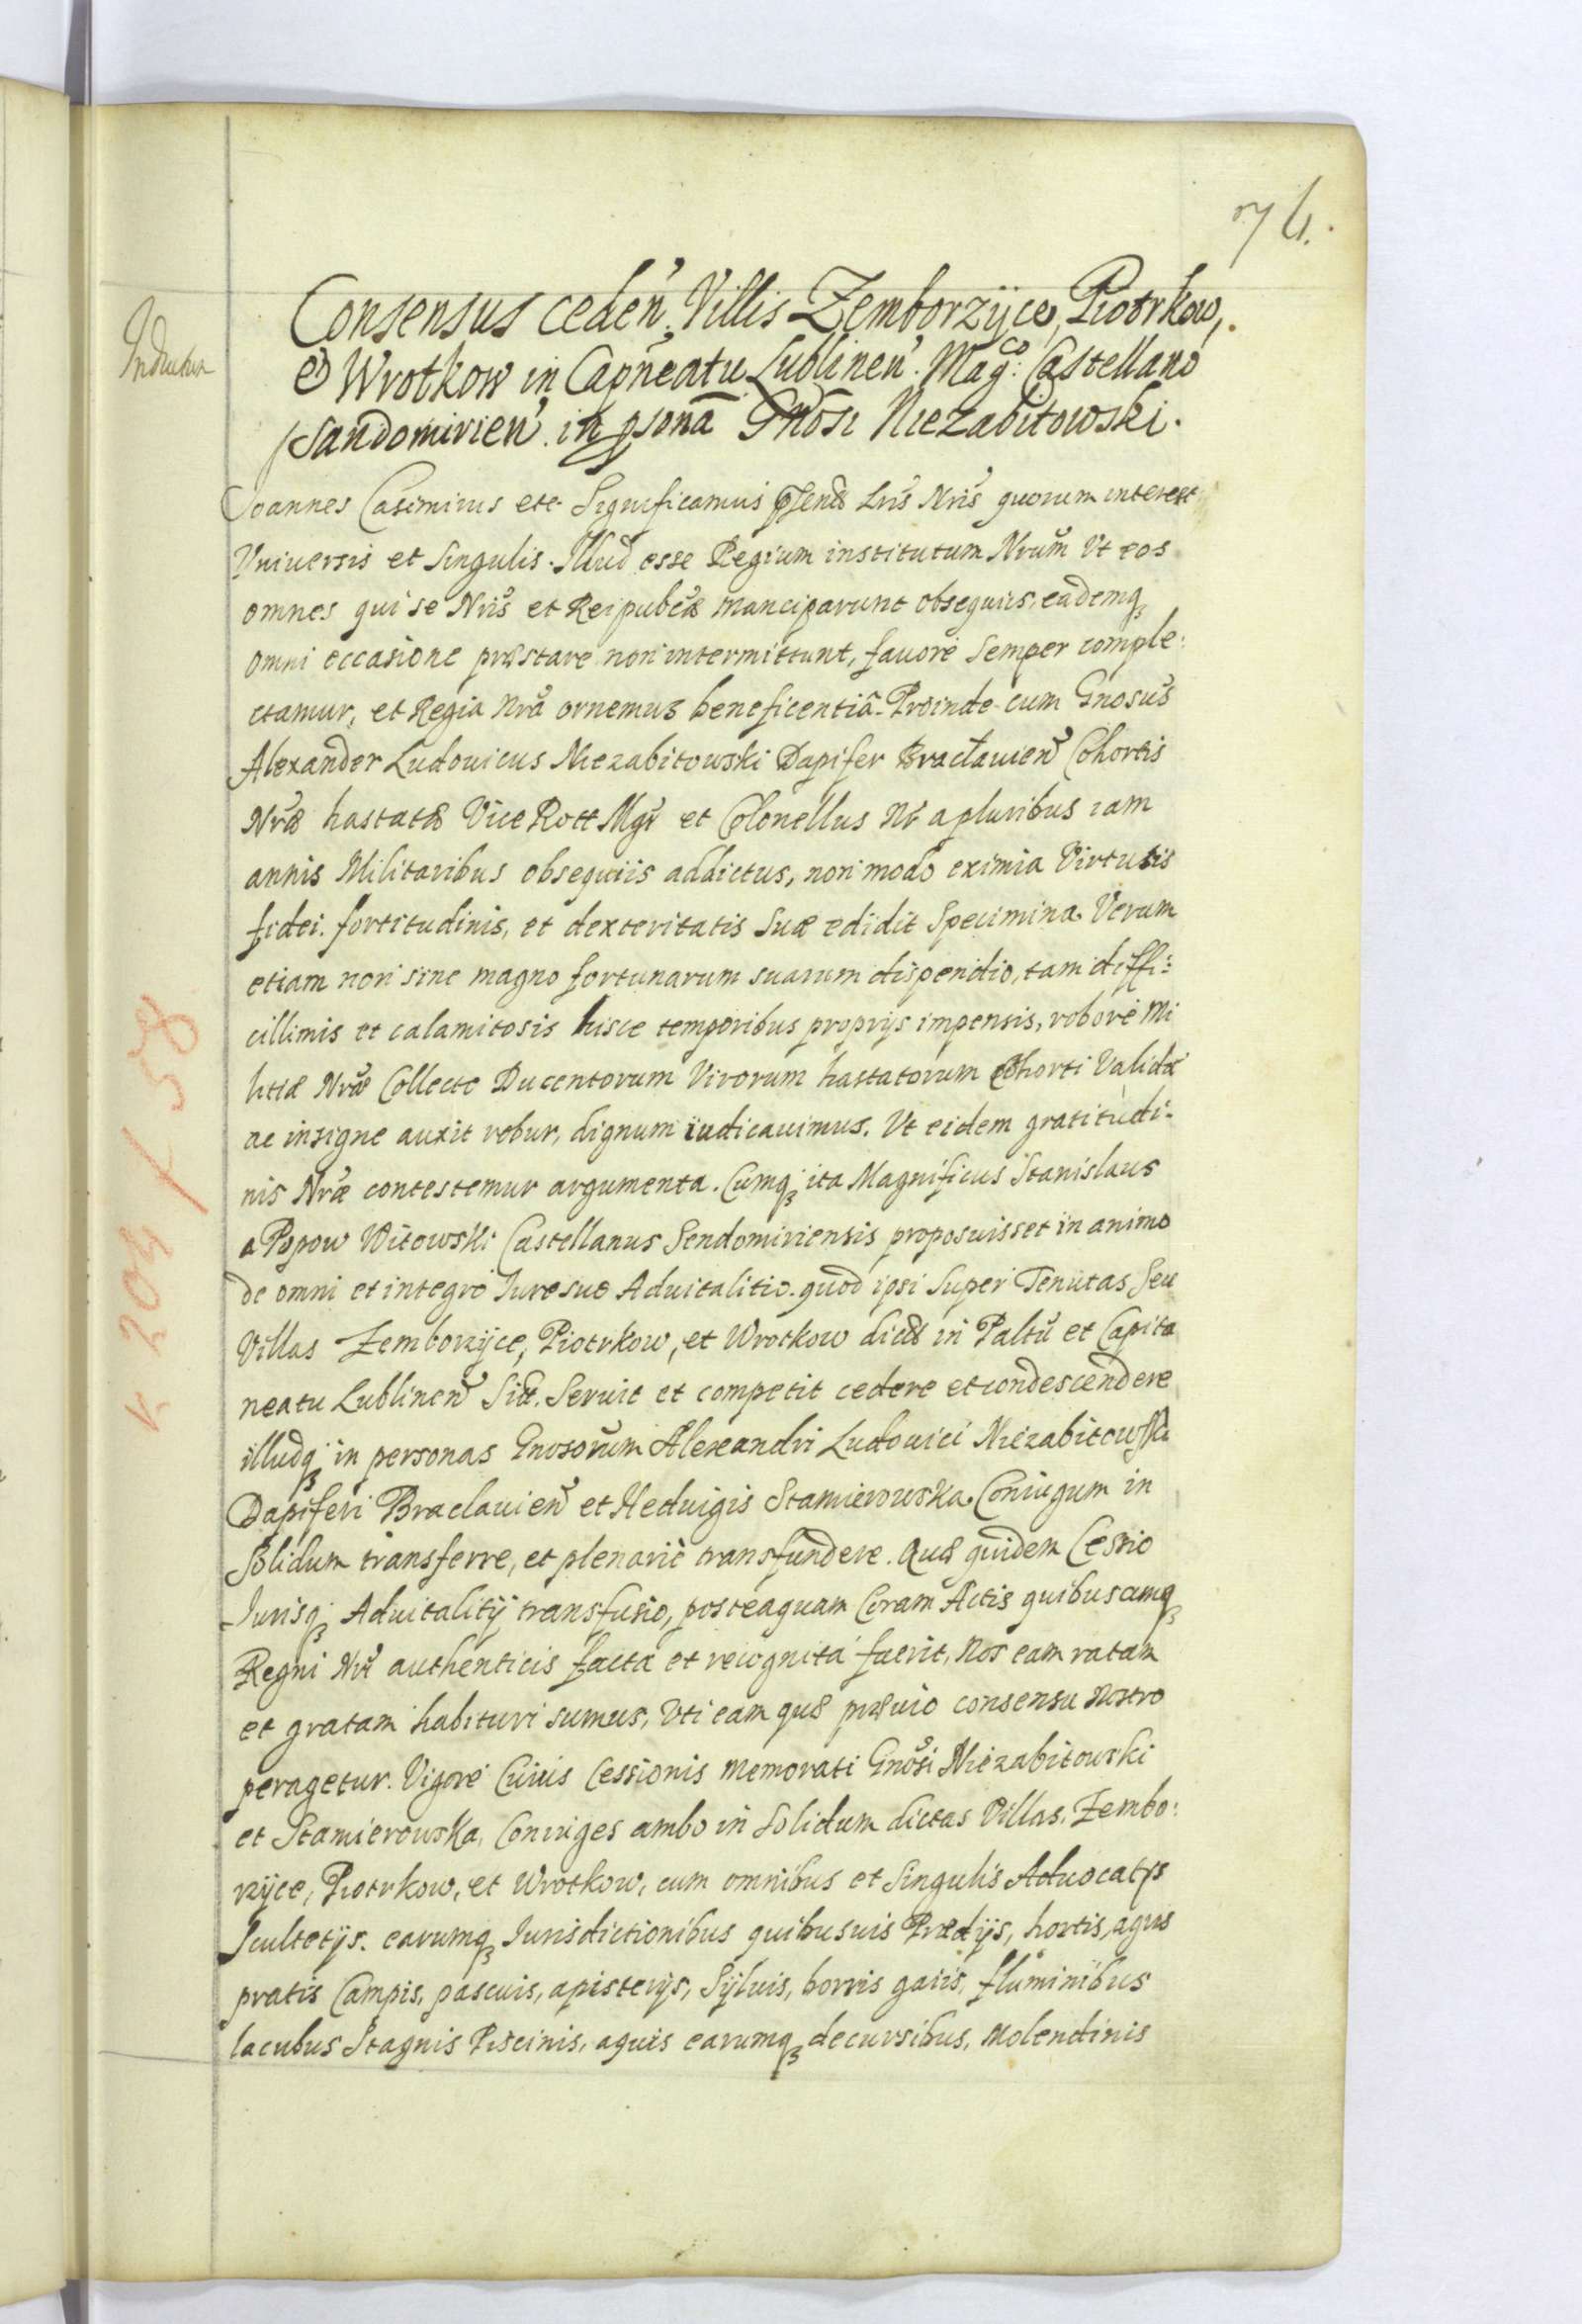 76.
Consensus ceden̄. Villis Zemborzÿce, Piotrkow,
et Wrotkow in Capn̄eatu Lublinen̄. Mag:co Castellano
Sandomirien̄. in psonā Gnosi Niezabitowski.
Inducitur
Joannes Casimirus etc. Significamus pntibus Lris Nris quorum interest
Vniuersis et Singulis. Illud esse Regium institutum Nrum Vt eos
omnes qui se Nris et Reipubcæ manciparunt obsequiis, eademq3
omni occasione præstare non intermittunt, fauore Semper comple:
ctamur, et Regia Nra ornemus beneficentiâ. Proinde cum Gnosus
Alexander Ludouicus Niezabitowski Dapifer Bracłauien̄ Cohortis
Nræ hastatæ Vice Rott Mgr et Colonellus Nr a pluribus iam
annis Militaribus obsequiis addictus, non modo eximia Virtutis
fidei. fortitudinis, et dexteritatis Suæ edidit Specimina. Verum
etiam non sine magno fortunarum suarum dispendio, tam diffi:
cillimis et calamitosis hisce temporibus proprÿs impensis, robore Mi
litiæ Nræ Collecto Ducentorum Virorum hastatorum Cohorti Validæ
ac insigne auxit robur, dignum iudicauimus. Vt eidem gratitudi:
nis Nræ contestemur argumenta. Cumq3 ita Magnificus Stanislaus
a Popow Witowski Castellanus Sendomiriensis proposuisset in animo
de omni et integro Iure suo Aduitalitio. quod ipsi Super Tenutas Seu
Villas Zemborzÿce, Piotrkow, et Wrotkow dictas in Paltu et Capita
neatu Lublinen̄ Sitt. Seruit et competit cedere et condescendere
illudq3 in personas Gnosorum Alexandri Ludouici Niezabitowski
Dapiferi Braclauien̄ et Heduigis Stamierowska Coniugum in
Solidum transferre, et plenariè transfundere. Quæ quidem Cessio
Iurisq3 Aduitalitÿ transfusio, posteaquam Coram Actis quibuscumq3
Regni Nri authenticis facta et recognita fuerit, Nos eam ratam
et gratam habituri sumus, Vti eam quæ præuio consensu Nostro
peragetur. Vigore Cuius Cessionis memorati Gnosi Niezabitowski
et Stamierowska, Coniuges ambo in Solidum dictas Villas. Zembo:
rzÿce, Piotrkow, et Wrotkow, cum omnibus et Singulis Aduocatÿs
Scultetÿs. earumq3 Iurisdictionibus quibusuis Prædÿs, hortis, agris
pratis Campis, pascuis, apisterÿs, Sÿluis, borris gaiis, fluminibus
lacubus Stagnis Piscinis, aquis earumq3 decursibus, Molendinis